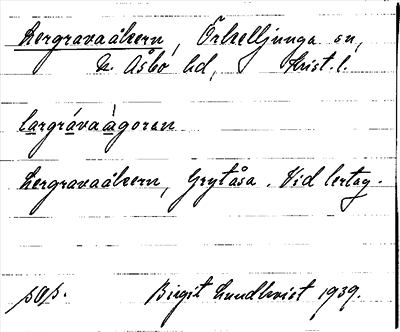 Lergravaåkern, Örkelljunga sn,
N. Åsbo hd, Krist. l.
largrávaàgoren
Lergravaåkern, Grytåsa. Vid lertag.
sÖp. Birgit Lundkvist 1939.